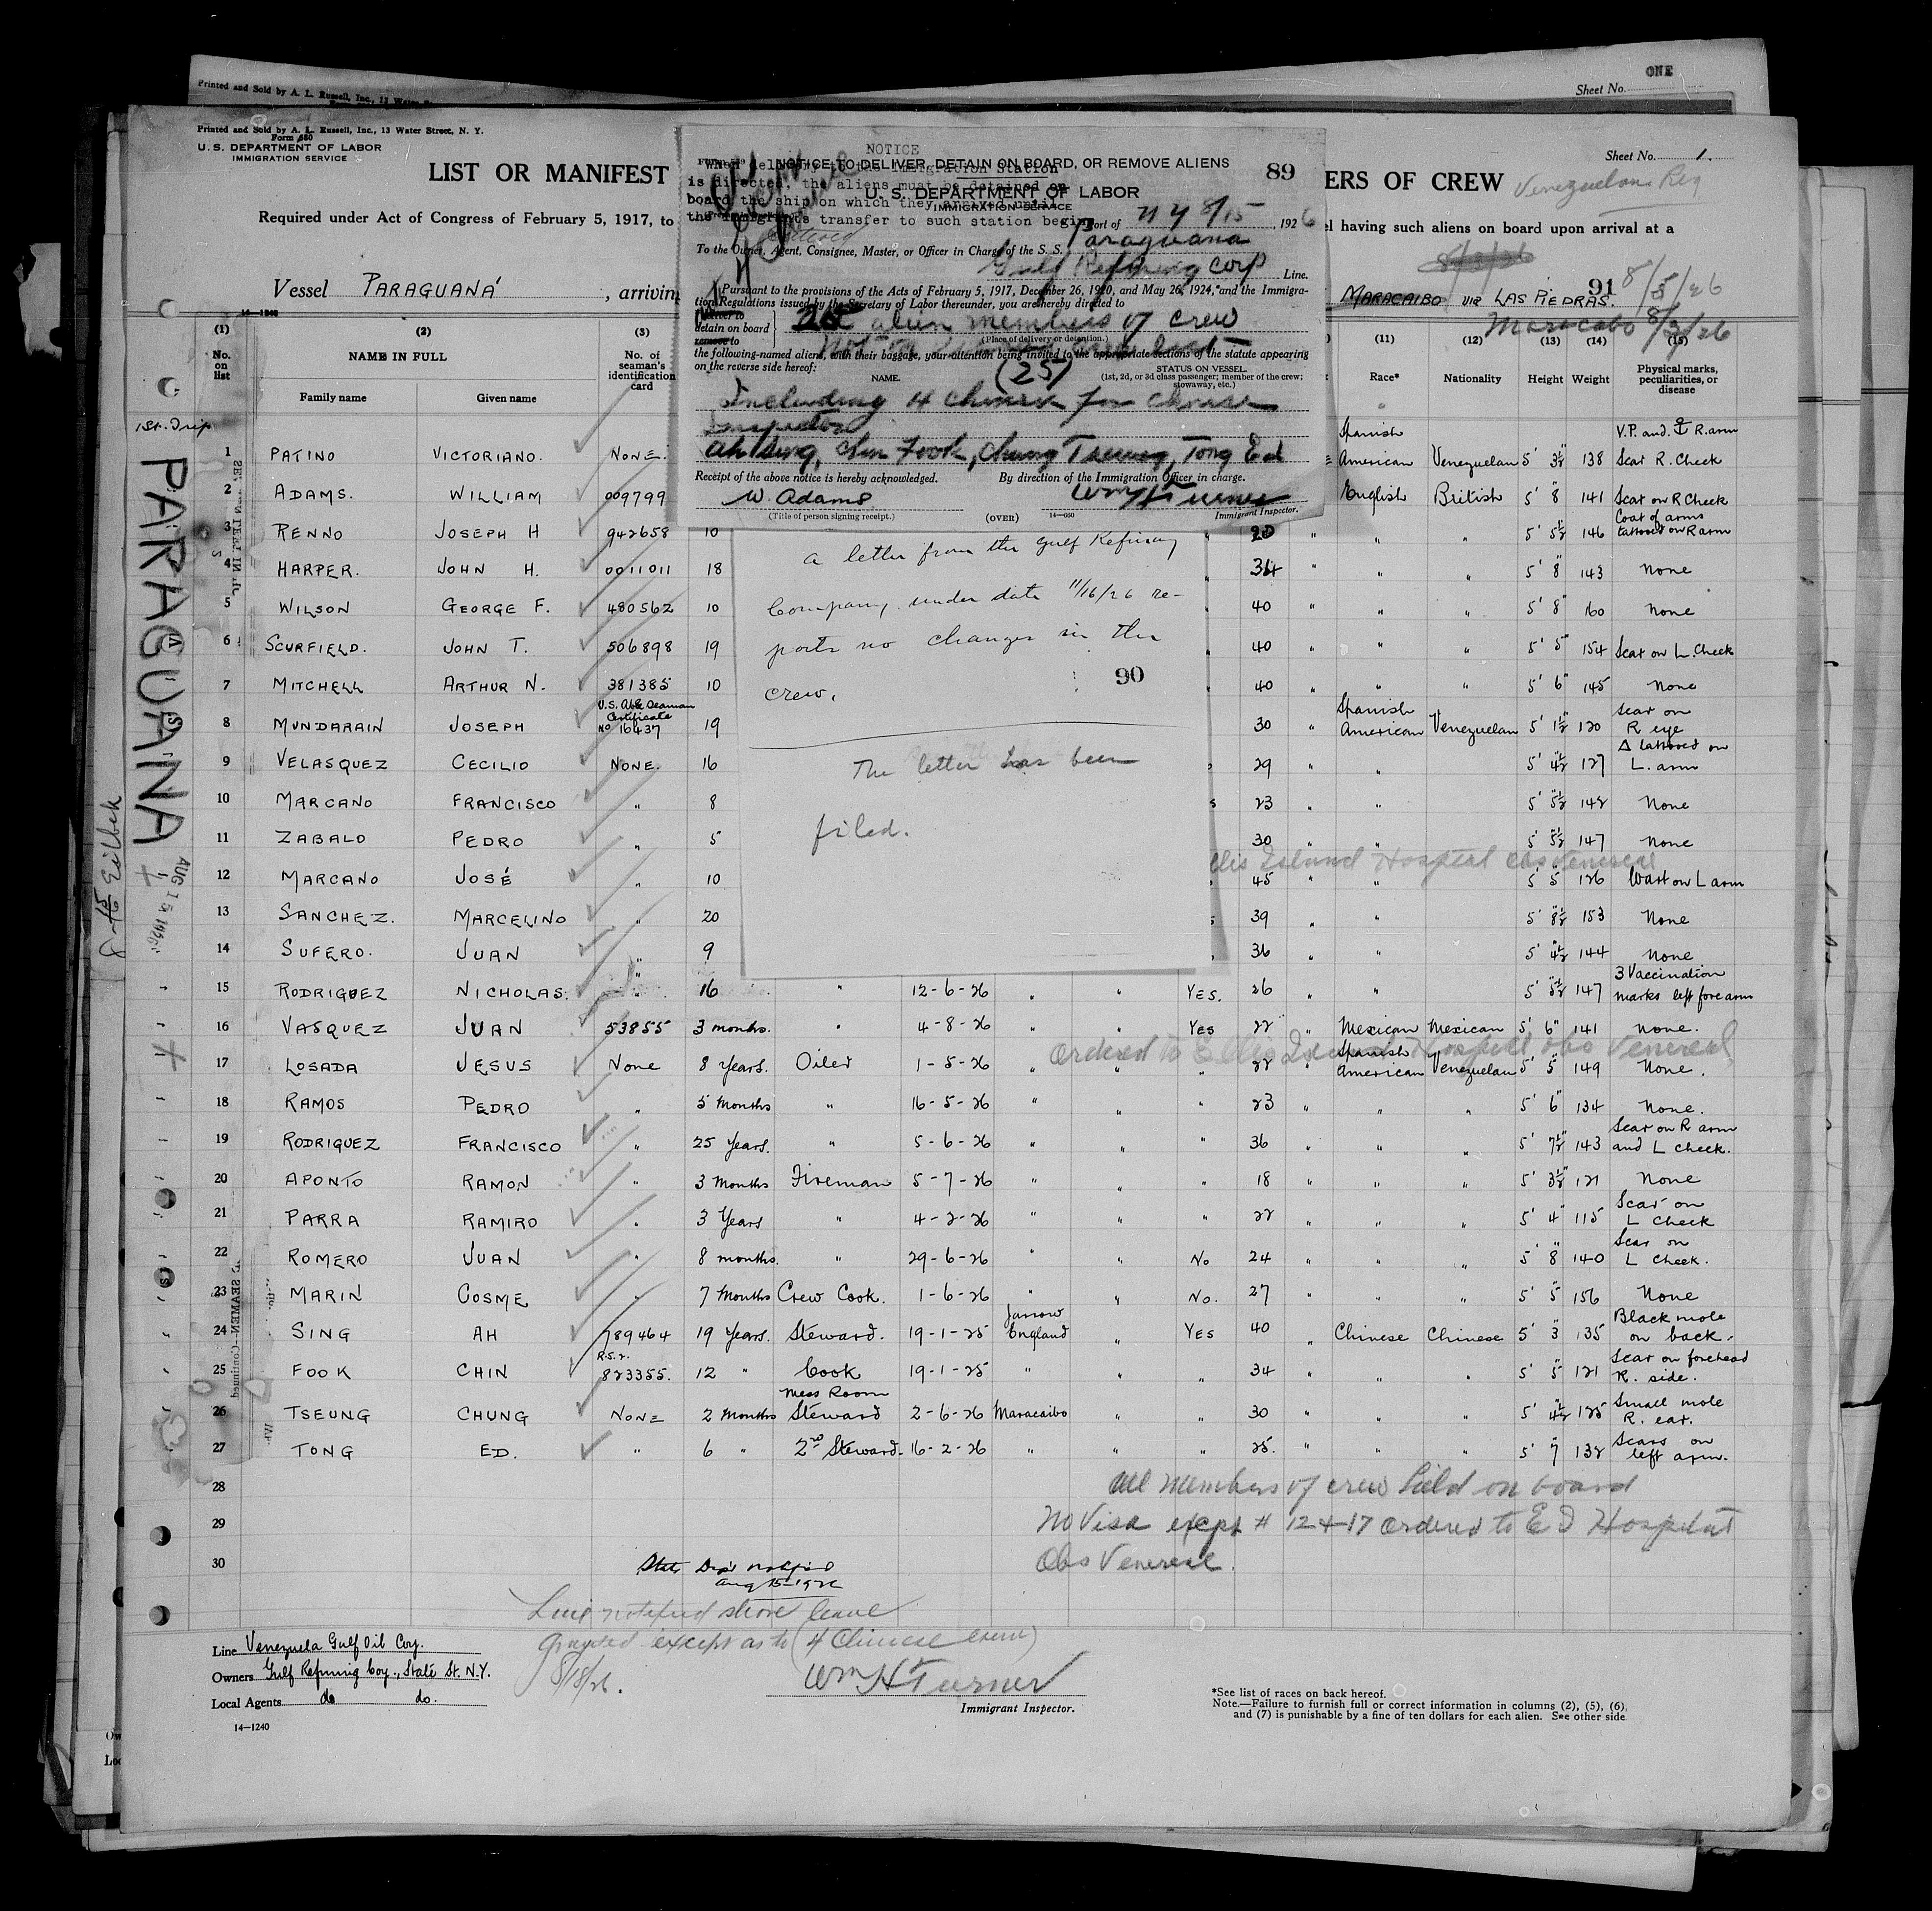 Printed and Sold by A. L. Russell, Inc., 13 Water
ONE
Sheet No.
Printed and Sold by A. L. Russell, Inc., 13 Water Street, N. Y.
Form 680
U. S. DEPARTMENT OF LABOR
IMMIGRATION SERVICE
Sheet No. 1.
LIST OR MANIFEST
ERS OF CREW
Venezuelan Reg
Required under Act of Congress of February 5, 1917, to
el having such aliens on board upon arrival at a
Vessel PARAGUANÁ, arriving
MARACAIBO VIA LAS PIEDRAS. 91 8/5/26
Maracabo 8/3/26
NOTICE
When delivery to the Immigration Station
is directed, the aliens must be detained on
board the ship on which they arrived until
the immigrant's transfer to such station begins
NOTICE TO DELIVER, DETAIN ON BOARD, OR REMOVE ALIENS
89
U. S. DEPARTMENT OF LABOR
IMMIGRATION SERVICE
Port of N Y 8/15, 1926
To the Owner, Agent, Consignee, Master, or Officer in Charge of the S. S. Paraguana
Gulf Refining Corp Line.
Pursuant to the provisions of the Acts of February 5, 1917, December 26, 1920, and May 26, 1924, and the Immigra-
tion Regulations issued by the Secretary of Labor thereunder, you are hereby directed to
deliver to
detain on board
remove to
25 alien members of crew
(Place of delivery or detention.)
the following-named aliens, with their baggage, your attention being invited to the appropriate sections of the statute appearing
on the reverse side hereof:
NAME.
(25)
STATUS ON VESSEL.
(1st, 2d, or 3d class passenger; member of the crew;
stowaway, etc.)
Including 4 Chinese for Chinese
Inspector
Ah Sing, Chin Fook, Chung Tseung, Tong Ed
Receipt of the above notice is hereby acknowledged.
By direction of the Immigration Officer in charge.
W. Adams
Wm H Turner
(Title of person signing receipt.)
(OVER)
14—660
Immigrant Inspector.
a letter from the Gulf Refining
Company under date 11/16/26 re-
ports no changes in the
crew.
90
The letter has been
filed.
14—1240
(1) (2) (3) (11) (12) (13) (14) (15)
No. on list
NAME IN FULL
Family name
Given name
No. of seaman's identification card
Race*
Nationality
Height
Weight
Physical marks, peculiarities, or disease
1st. Trip
PARAGUANA
AUG 15 1926
8-15 Eilbek
1 PATINO VICTORIANO. NONE. Spanish American Venezuelan 5' 3½" 138 V.P. and ⚓ R. arm Scar R. Cheek
2 ADAMS. WILLIAM 009799 English British 5' 8" 141 Scar on R Cheek
3 RENNO JOSEPH H 942658 10 20 " " " 5' 5½ 146 Coat of arms tattooed on R arm
4 HARPER. JOHN H. 0011011 18 34 " " " 5' 8" 143 None
5 WILSON GEORGE F. 480562 10 40 " " " 5' 8" 160 None
6 SCURFIELD. JOHN T. 506898 19 40 " " " 5' 5" 154 Scar on L. Cheek
7 MITCHELL ARTHUR N. 381385 10 40 " " " 5' 6" 145 None
8 MUNDARAIN JOSEPH U.S. Able Seaman Certificate No 16437 19 30 " Spanish American Venezuelan 5' 1½ 120 Scar on R eye
9 VELASQUEZ CECILIO NONE. 16 29 " " 5' 4½ 127 Δ tattooed on L. arm
10 MARCANO FRANCISCO " 8 23 " " 5' 5½ 142 None
11 ZABALO PEDRO " 5 30 " " 5' 5½ 147 None
llis Island Hospital obs Venereal
12 MARCANO JOSÉ " 10 45 " " 5' 5" 126 Wart on L arm
13 SANCHEZ. MARCELINO " 20 39 " " 5' 8½ 153 None
14 SUFERO. JUAN " 9 36 " " 5' 4½ 144 None
15 RODRIGUEZ NICHOLAS. " 16 " 12-6-26 " " YES. 26 " " 5' 5½ 147 3 Vaccination marks left forearm
16 VASQUEZ JUAN 53855 3 months. " 4-8-26 " " Yes 22 " Mexican Mexican 5' 6" 141 None.
Ordered to Ellis Island Hospital obs Venereal
17 LOSADA JESUS None 8 Years. Oiler 1-5-26 " " " 22 " Spanish American Venezuelan 5' 5" 149 None.
18 RAMOS PEDRO " 5 Months " 16-5-26 " " " 23 " " " 5' 6" 134 None.
19 RODRIGUEZ FRANCISCO " 25 Years. " 5-6-26 " " " 36 " " " 5' 7½" 143 Scar on R arm and L cheek.
20 APONTO RAMON " 3 Months Fireman 5-7-26 " " " 18 " " " 5' 3½" 121 None
21 PARRA RAMIRO " 3 Years " 4-2-26 " " " 22 " " " 5' 4" 115 Scar on L Cheek
22 ROMERO JUAN " 8 months. " 29-6-26 " " No 24 " " " 5' 8" 140 Scar on L Cheek.
23 MARIN COSME " 7 Months Crew Cook. 1-6-26 " " No. 27 " " " 5' 5" 156 None
24 SING AH 789464 19 Years. Steward. 19-1-25 Jarrow England " YES 40 " Chinese Chinese 5' 3" 135 Black mole on back.
25 FOOK CHIN R.S.2. 823355. 12 " Cook 19-1-25 " " " 34 " " " 5' 5" 121 Scar on forehead R. side.
26 TSEUNG CHUNG NONE 2 Months Mess Room Steward 2-6-26 Maracaibo " " 30 " " " 5' 4½ 125 Small mole R. ear.
27 TONG ED. " 6 " 2nd Steward. 16-2-26 " " " 25. " " " 5' 7" 132 Scars on left arm.
28 All members of crew held on board
29 No Visa except # 12 + 17 ordered to E I Hospital
30 Obs Venereal.
State Dept notified
Aug 15-1926
Line notified shore leave
granted except as to (4 Chinese crew)
8/18/26.
Wm H Turner
Immigrant Inspector.
Line Venezuela Gulf Oil Coy.
Owners Gulf Refining Coy., State St. N.Y.
Local Agents do do.
14—1240
*See list of races on back hereof.
Note.—Failure to furnish full or correct information in columns (2), (5), (6),
and (7) is punishable by a fine of ten dollars for each alien. See other side